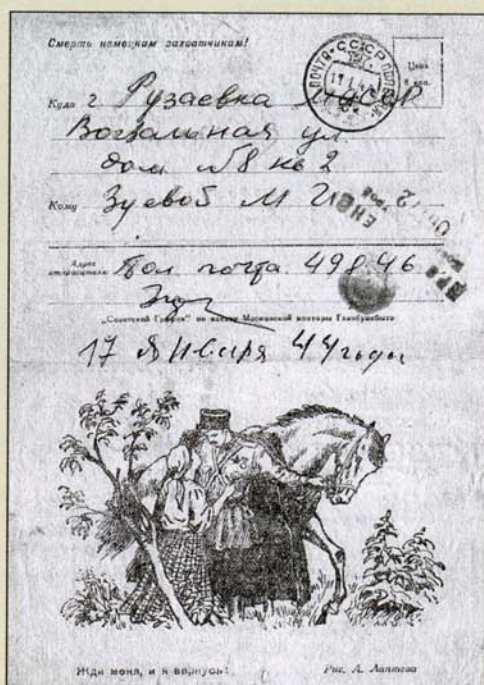 Смерть немецким захватчикам!
ПОЧТА • СССР
17.1.4
Цена
Куда г. Рузаевка МАССР
Вокзальная ул
дом №8 кв 2
Кому Зуевой М
Адрес
отправителя: Пол почта 49846
„Советский График“ по заказу Московской конторы Главбумсбыта
17 Января 44 года
Жди меня, и я вернусь!
Рис. А. Лаптева